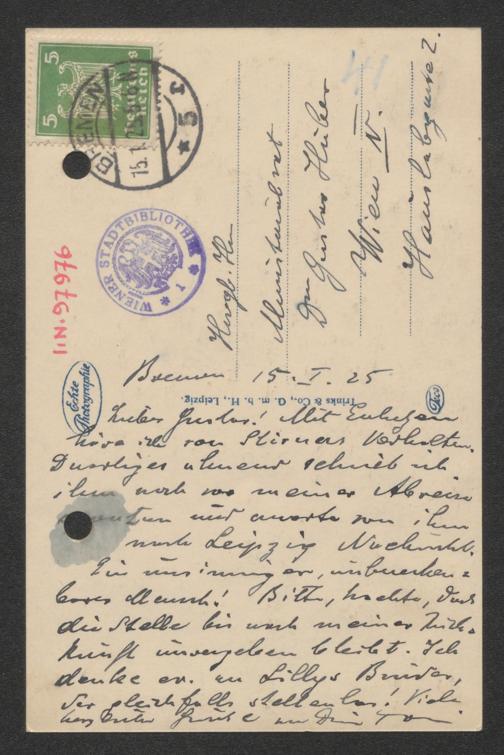 5
5
Deutsches
Reich
BREMEN
15.1.25
* 5 r
WIENER STADTBIBLIOTHEK
* 1 *
I.N. 67976
Herrn
Ministerialrat
Dr Gustav Huber
Wien IV.
Hauslabgasse 2.
Echte
Photographie
Trinks & Co., G. m. b. H., Leipzig.
Bremen 15. I. 25
Lieber Gustav! Mit Entsetzen
höre ich von Stirners Verhalten.
Derartiges ahnend schrieb ich
ihm noch vor meiner Abreise
und erwarte von ihm
nach Leipzig Nachricht.
Ein unsinniger, unberechen-
barer Mensch! Bitte, trachte, dass
die Stelle bis nach meiner Rück-
kunft unvergeben bleibt. Ich
denke ev. an Lillys Bruder,
der gleichfalls stellenlos! Viele
herzliche Grüße an Dein Toni